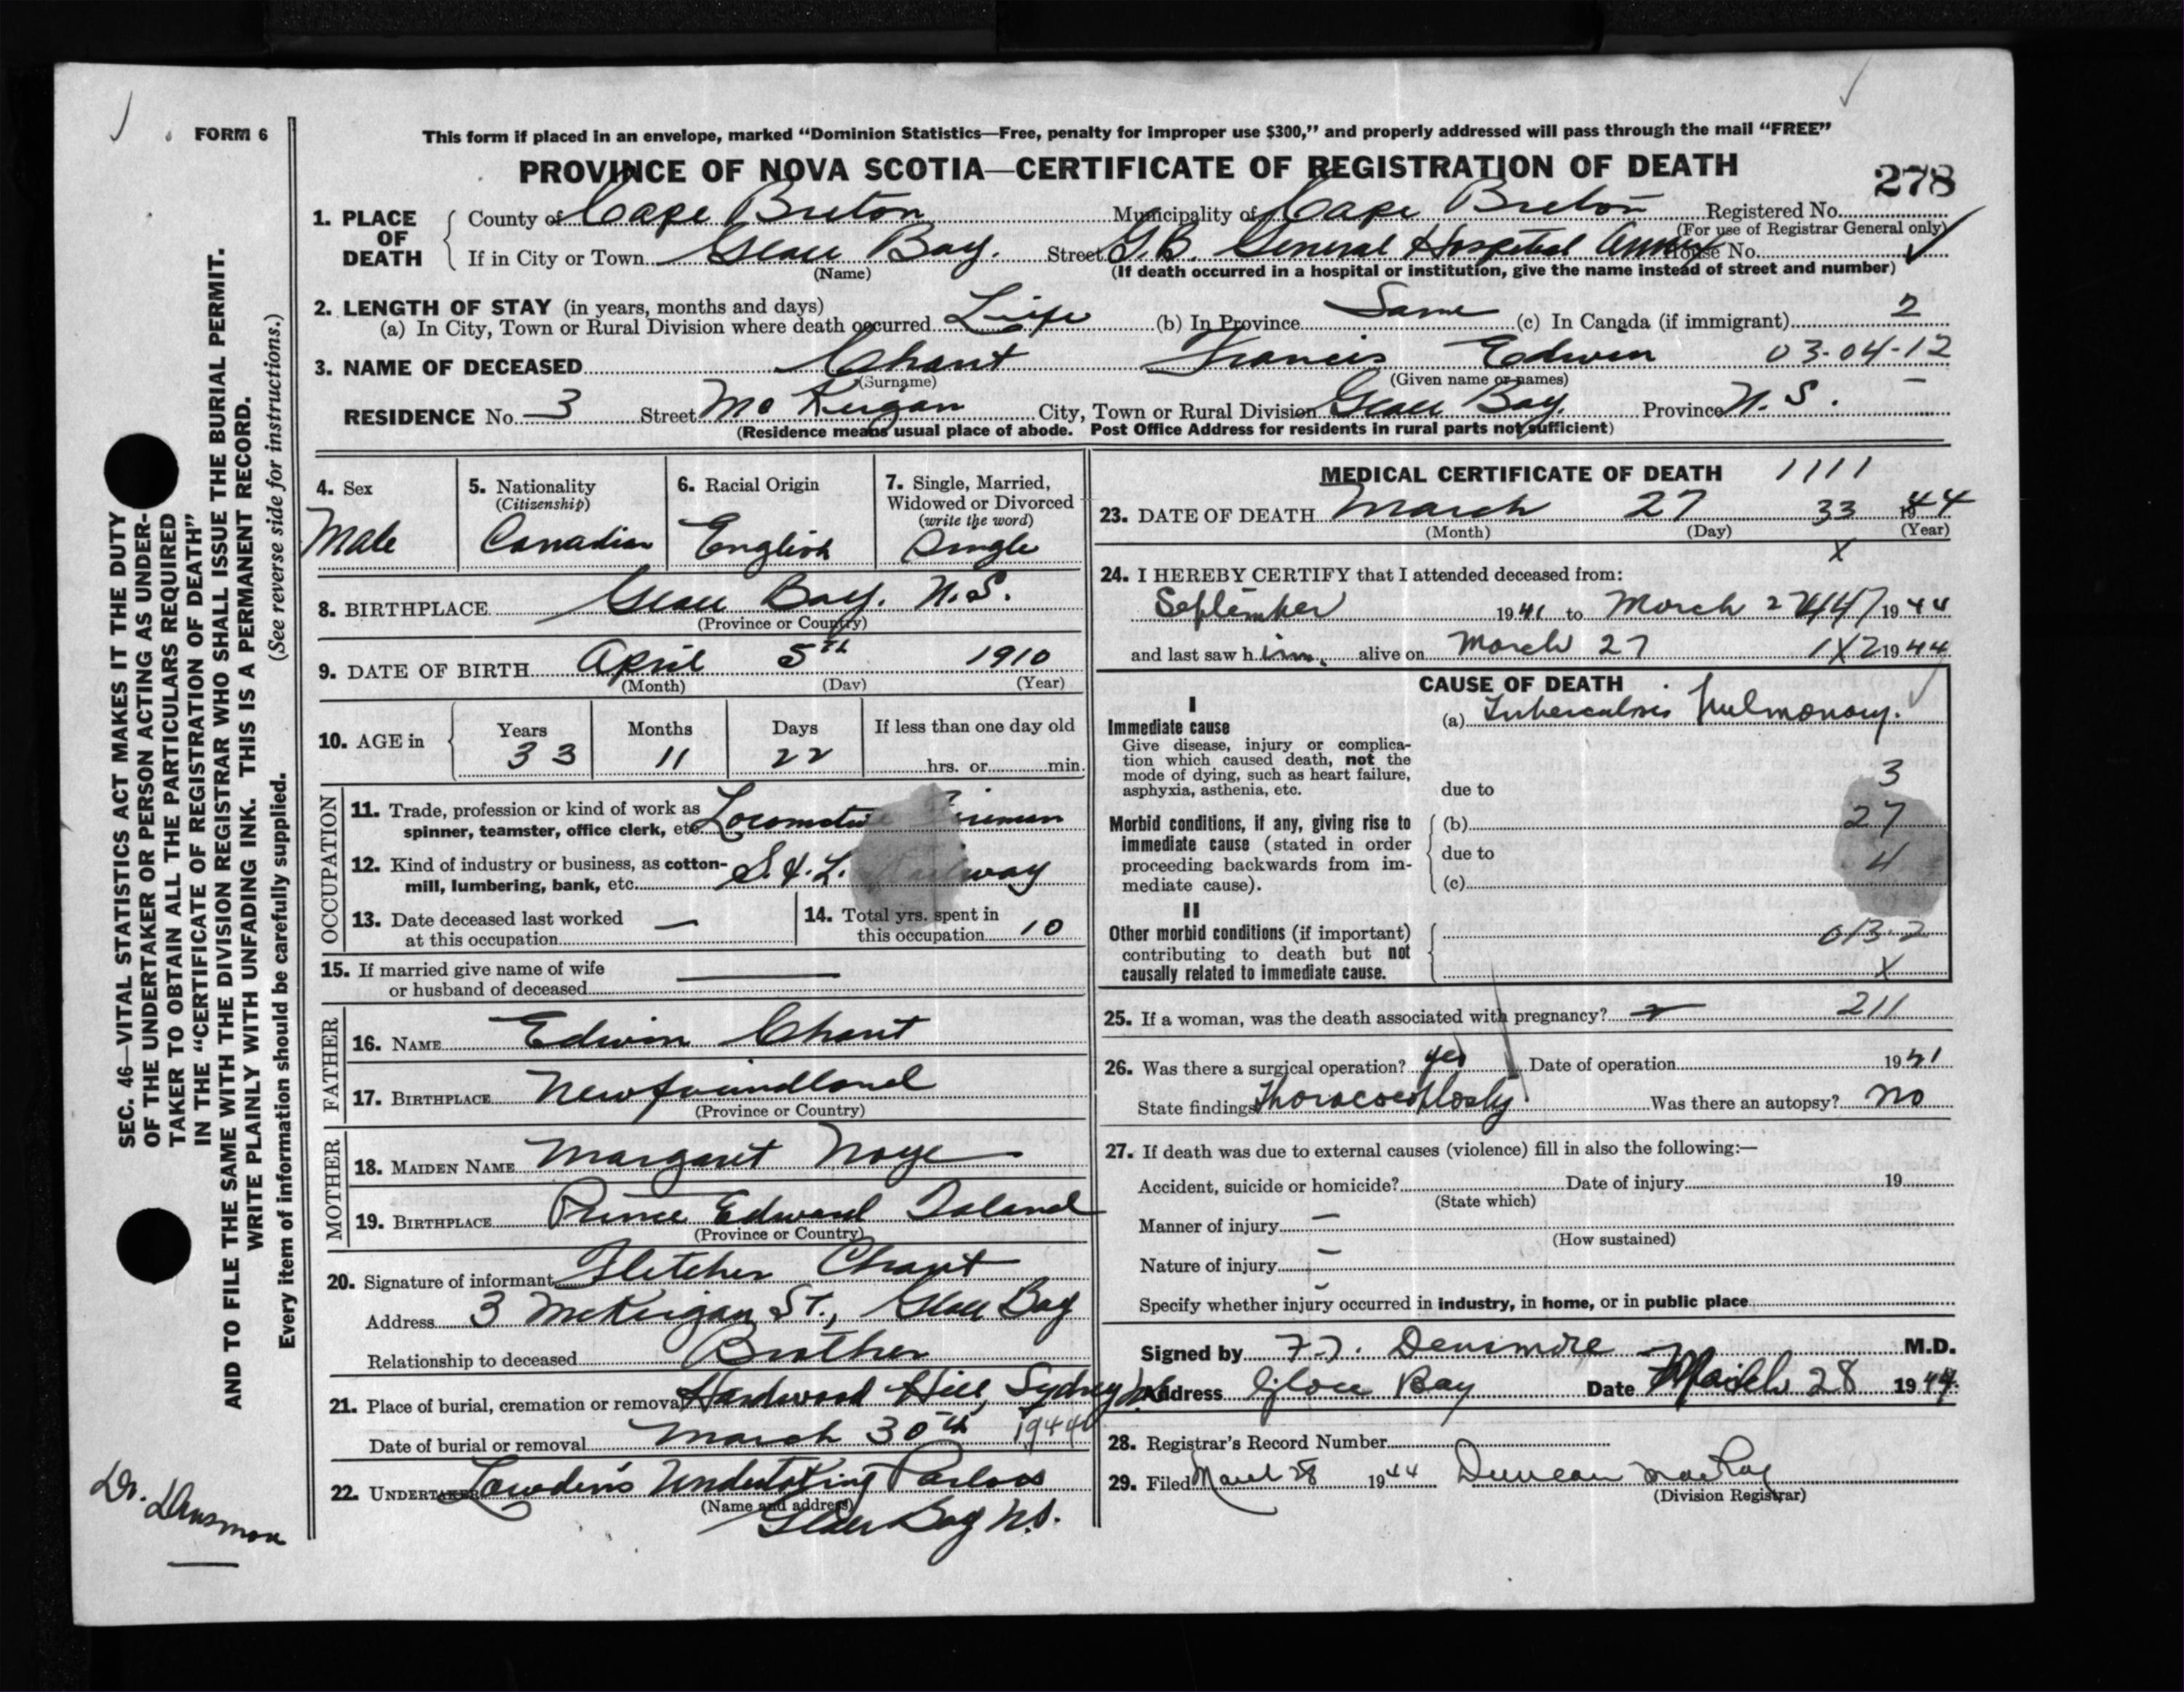 FORM 6
This form if placed in an envelope, marked “Dominion Statistics—Free, penalty for improper use $300,” and properly addressed will pass through the mail “FREE”
PROVINCE OF NOVA SCOTIA—CERTIFICATE OF REGISTRATION OF DEATH
278
1. PLACE OF DEATH
County of Cape Breton Municipality of Cape Breton Registered No.
(For use of Registrar General only)
If in City or Town Glace Bay. Street G.B. General Hospital Annex House No.
(Name) (If death occurred in a hospital or institution, give the name instead of street and number)
2. LENGTH OF STAY (in years, months and days)
(a) In City, Town or Rural Division where death occurred Life (b) In Province Same (c) In Canada (if immigrant) 2
3. NAME OF DECEASED Chant Francis Edwin 03-04-12
(Surname) (Given name or names)
RESIDENCE No. 3 Street McKeigan City, Town or Rural Division Glace Bay. Province N.S.
(Residence means usual place of abode. Post Office Address for residents in rural parts not sufficient)
4. Sex
Male
5. Nationality
(Citizenship)
Canadian
6. Racial Origin
English
7. Single, Married,
Widowed or Divorced
(write the word)
Single
8. BIRTHPLACE Glace Bay. N.S.
(Province or Country)
9. DATE OF BIRTH April 5th 1910
(Month) (Day) (Year)
10. AGE in
Years Months Days If less than one day old
33 11 22 hrs. or min.
OCCUPATION
11. Trade, profession or kind of work as
spinner, teamster, office clerk, etc. Locomotive Fireman
12. Kind of industry or business, as cotton-
mill, lumbering, bank, etc. S. & L. Railway
13. Date deceased last worked
at this occupation —
14. Total yrs. spent in
this occupation 10
15. If married give name of wife
or husband of deceased —
FATHER
16. NAME Edwin Chant
17. BIRTHPLACE Newfoundland
(Province or Country)
MOTHER
18. MAIDEN NAME Margaret Noye
19. BIRTHPLACE Prince Edward Island
(Province or Country)
20. Signature of informant Fletcher Chant
Address 3 McKeigan St., Glace Bay
Relationship to deceased Brother
21. Place of burial, cremation or removal Hardwood Hill, Sydney
Date of burial or removal March 30th 1944
22. UNDERTAKER Lowden's Undertaking Parlors
(Name and address)
Glace Bay N.S.
MEDICAL CERTIFICATE OF DEATH 1111
23. DATE OF DEATH March 27 33 1944
(Month) (Day) (Year)
X
24. I HEREBY CERTIFY that I attended deceased from:
September 1941 to March 27 1944
and last saw him. alive on March 27 1X2 1944
CAUSE OF DEATH
I
Immediate cause
Give disease, injury or complica-
tion which caused death, not the
mode of dying, such as heart failure,
asphyxia, asthenia, etc.
(a) Tuberculosis Pulmonary.
3
due to
Morbid conditions, if any, giving rise to
immediate cause (stated in order
proceeding backwards from im-
mediate cause).
(b) 27
due to 4
(c)
II
Other morbid conditions (if important)
contributing to death but not
causally related to immediate cause.
013-2
X
25. If a woman, was the death associated with pregnancy? 211
26. Was there a surgical operation? yes Date of operation 1941
State findings Was there an autopsy? no
27. If death was due to external causes (violence) fill in also the following:—
Accident, suicide or homicide? Date of injury 19
(State which)
Manner of injury —
(How sustained)
Nature of injury —
Specify whether injury occurred in industry, in home, or in public place
Signed by Densmore M.D.
Address Glace Bay Date March 28 1944.
28. Registrar's Record Number
29. Filed March 28 1944 Duncan MacKay
(Division Registrar)
SEC. 46—VITAL STATISTICS ACT MAKES IT THE DUTY
OF THE UNDERTAKER OR PERSON ACTING AS UNDER-
TAKER TO OBTAIN ALL THE PARTICULARS REQUIRED
IN THE “CERTIFICATE OF REGISTRATION OF DEATH”
AND TO FILE THE SAME WITH THE DIVISION REGISTRAR WHO SHALL ISSUE THE BURIAL PERMIT.
WRITE PLAINLY WITH UNFADING INK. THIS IS A PERMANENT RECORD.
(See reverse side for instructions.)
Every item of information should be carefully supplied.
Dr. Densmore